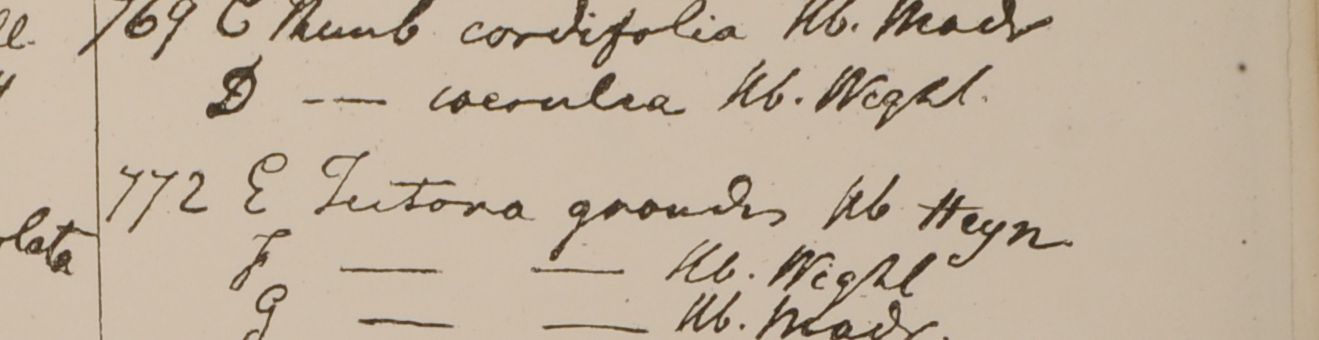 ll. 769 C Thunb cordifolia Hb. Madr
D -- coerulea Hb. Wight.
772 E Tectona grandis Hb Heyn
lata F — — Hb. Wight
G — — Hb. Madr.